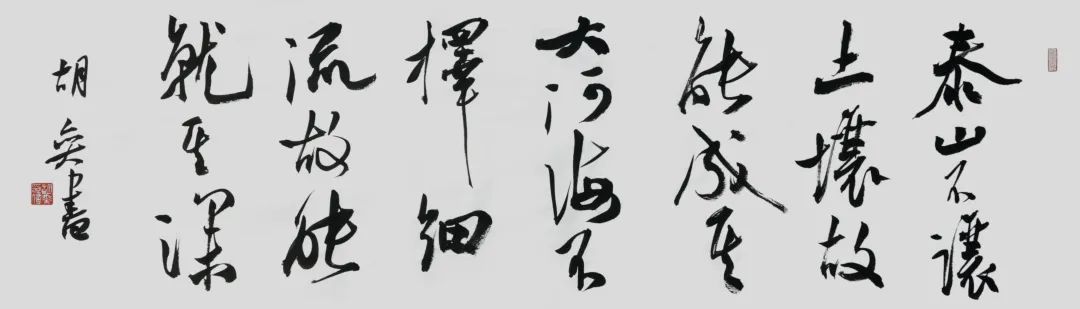 泰山不讓
土壤故
能成其
大河海不
擇細
流故能
就其深
胡奕書